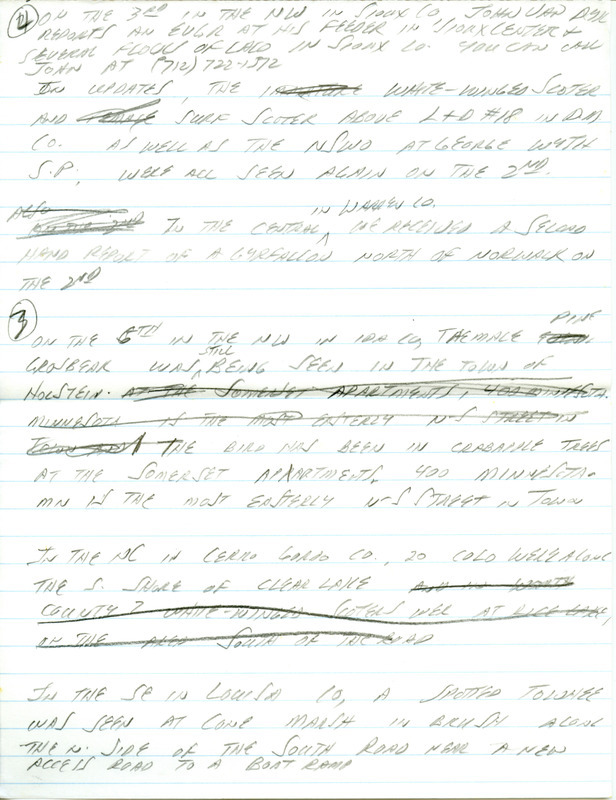 4 ON THE 3RD IN THE NW IN SIOUX CO, JOHN VAN DYK
REPORTS AN EUCD AT HIS FEEDER IN SIOUX CENTER &
SEVERAL FLOCKS OF LALO IN SIOUX CO. YOU CAN CALL
JOHN AT (712) 722-1572
IN UPDATES, THE WHITE-WINGED SCOTER
AND SURF SCOTER ABOVE L+D #18 IN DM
CO. AS WELL AS THE NSWO AT GEORGE WYTH
S.P., WERE ALL SEEN AGAIN ON THE 2ND.
ALSO IN WARREN CO.
IN THE CENTRAL, WE RECEIVED A SECOND
HAND REPORT OF A GYRFALCON NORTH OF NORWALK ON
THE 2ND
3
ON THE 6TH IN THE NW IN IDA CO, THE MALE PINE
GROSBEAK WAS STILL BEING SEEN IN THE TOWN OF
HOLSTEIN. AT THE SOMERSET APARTMENTS, 400 MINNESOTA.
MINNESOTA IS THE MOST EASTERLY N-S STREET IN
TOWN THE BIRD HAS BEEN IN CRABAPPLE TREES
AT THE SOMERSET APARTMENTS, 400 MINNESOTA.
MN IS THE MOST EASTERLY N-S STREET IN TOWN
IN THE NC IN CERRO GORDO CO., 20 COLO WERE ALONG
THE S. SHORE OF CLEAR LAKE AND IN WORTH
COUNTY 2 WHITE-WINGED SCOTERS WER AT RICE LAKE,
ON THE AREA SOUTH OF THE ROAD
IN THE SE IN LOUISA CO, A SPOTTED TOWHEE
WAS SEEN AT CONE MARSH IN BRUSH ALONG
THE N. SIDE OF THE SOUTH ROAD NEAR A NEW
ACCESS ROAD TO A BOAT RAMP